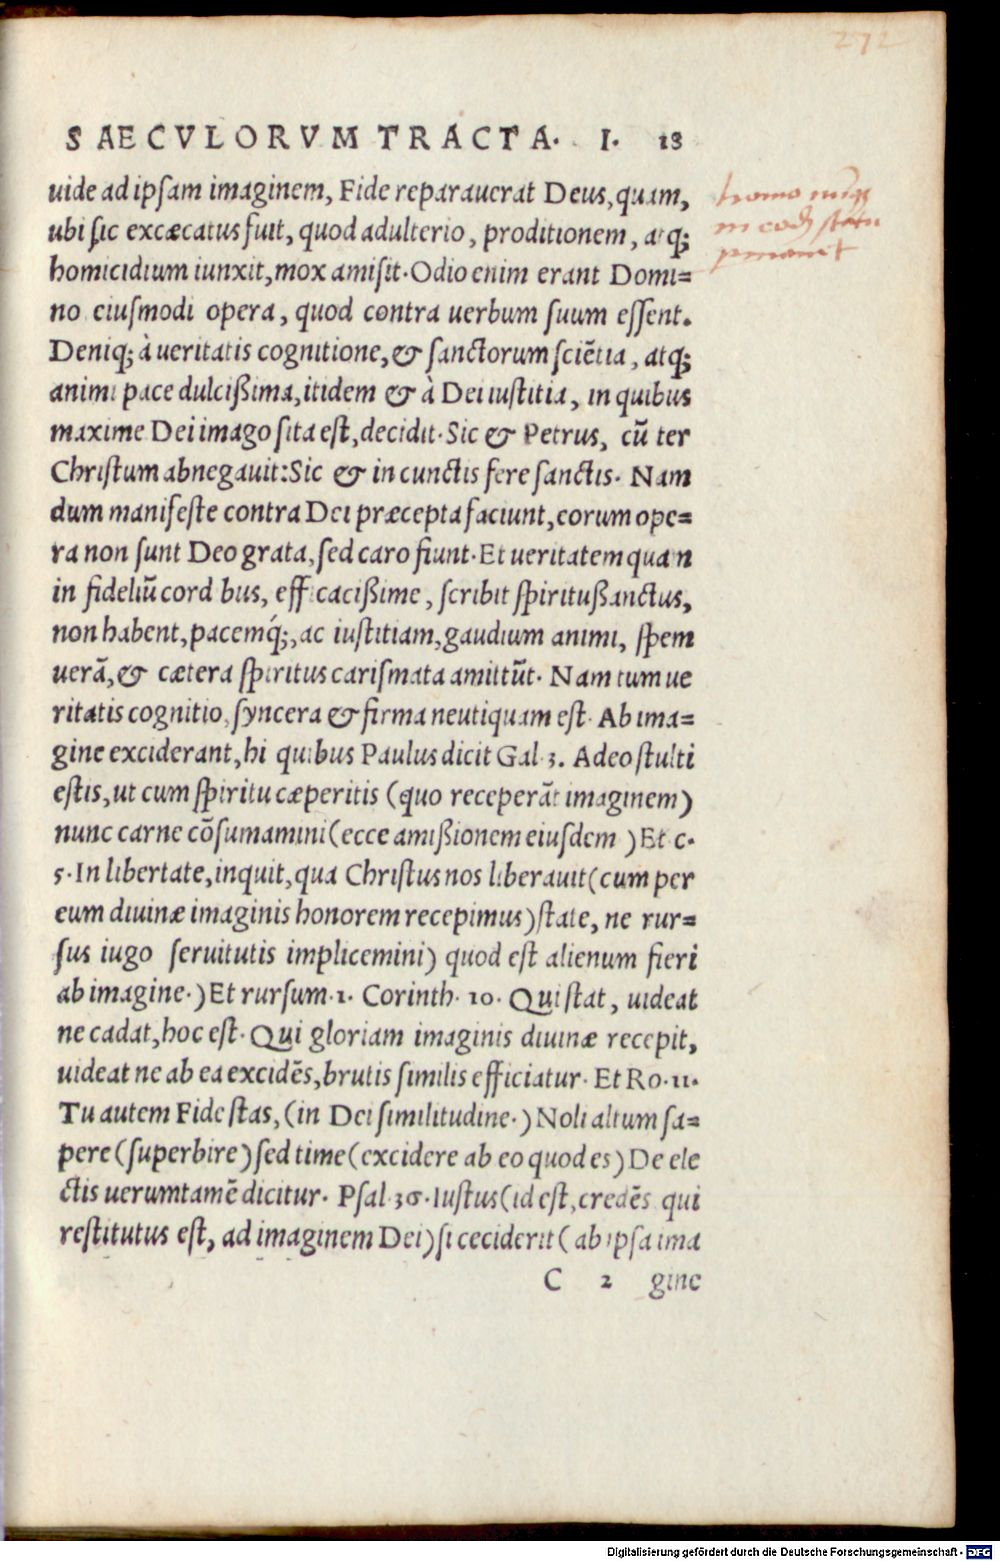 272
SAECVLORVM TRACTA. I. 18
uide ad ipsam imaginem, Fide reparauerat Deus, quam,
ubi sic excæcatus fuit, quod adulterio, proditionem, atq;
homicidium iunxit, mox amisit. Odio enim erant Domi=
no eiusmodi opera, quod contra uerbum suum essent.
Deniq; à ueritatis cognitione, & sanctorum sciẽtia, atq;
animi pace dulcißima, itidem & à Dei iustitia, in quibus
maxime Dei imago sita est, decidit. Sic & Petrus, cũ ter
Christum abnegauit: Sic & in cunctis fere sanctis. Nam
dum manifeste contra Dei præcepta faciunt, eorum ope=
ra non sunt Deo grata, sed caro fiunt. Et ueritatem quam
in fideliũ cordibus, efficacißime, scribit spiritußanctus,
non habent, pacemq́;, ac iustitiam, gaudium animi, spem
uerã, & cætera spiritus carismata amittũt. Nam tum ue
ritatis cognitio, syncera & firma neutiquam est. Ab ima=
gine exciderant, hi quibus Paulus dicit Gal. 3. Adeo stulti
estis, ut cum spiritu cæperitis (quo receperãt imaginem)
nunc carne cõsumamini (ecce amißionem eiusdem) Et c.
5. In libertate, inquit, qua Christus nos liberauit (cum per
eum diuinæ imaginis honorem recepimus) state, ne rur=
sus iugo seruitutis implicemini) quod est alienum fieri
ab imagine.) Et rursum. 1. Corinth. 10. Qui stat, uideat
ne cadat, hoc est. Qui gloriam imaginis diuinæ recepit,
uideat ne ab ea excidẽs, brutis similis efficiatur. Et Ro. 11.
Tu autem Fide stas, (in Dei similitudine.) Noli altum sa=
pere (superbire) sed time (excidere ab eo quod es) De ele
ctis uerumtamẽ dicitur. Psal. 36. Iustus (id est, credẽs qui
restitutus est, ad imaginem Dei) si ceciderit (ab ipsa ima
C 2 gine
homo
in eodẽ statu
Digitalisierung gefördert durch die Deutsche Forschungsgemeinschaft - DFG